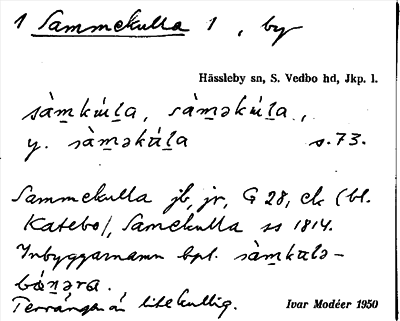 1 Sammekulla 1, by
Hässleby sn, S. Vedbo hd, Jkp. l.
sàm̲kúl̲a, sàm̲əkúl̲a,
y. sàm̲əkúl̲a s. 73.
Sammekulla jb, jr, G 28, ek (bl.
Katebo), Samekulla ss 1814.
Inbyggarnamn bpl.
Terrängen är lite kullig.
Ivar Modéer 1950